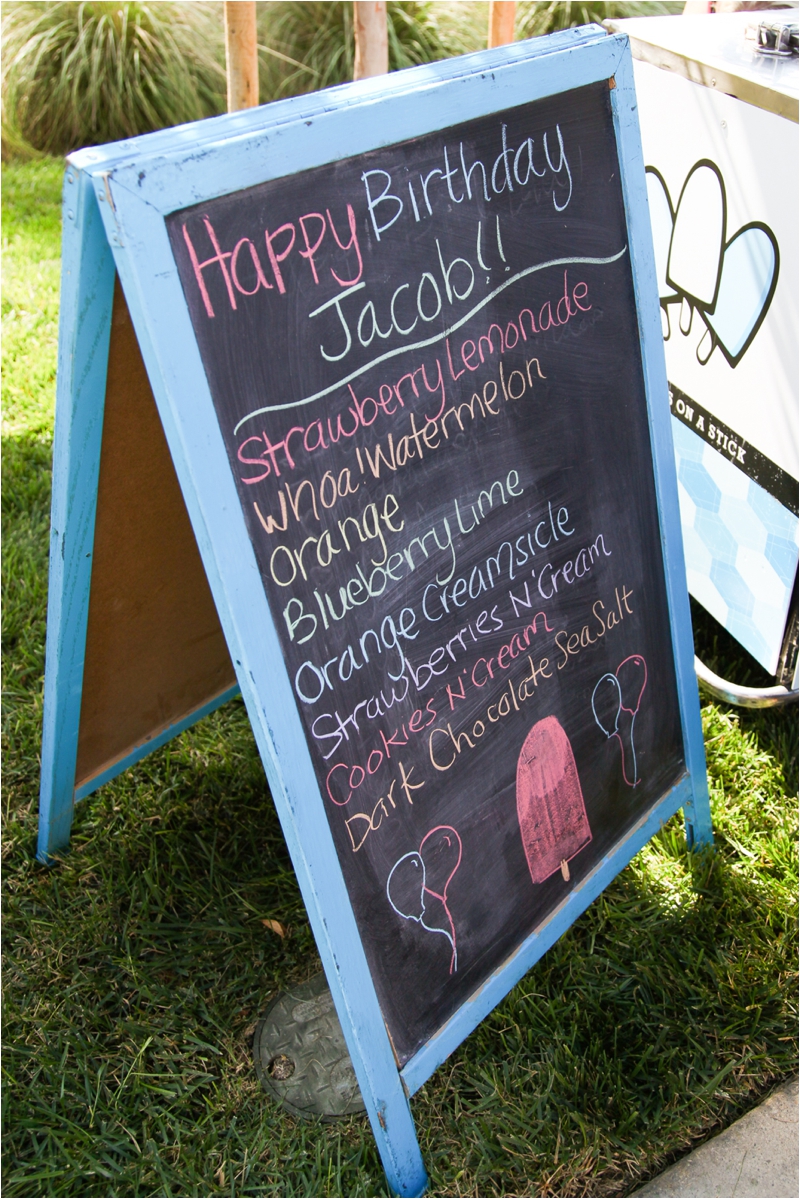 Happy Birthday
Jacob!!
Strawberry Lemonade
Whoa! Watermelon
Orange
Blueberry Lime
Orange Creamsicle
Strawberries N' Cream
Cookies N' Cream
Dark Chocolate Sea Salt
ON A STICK